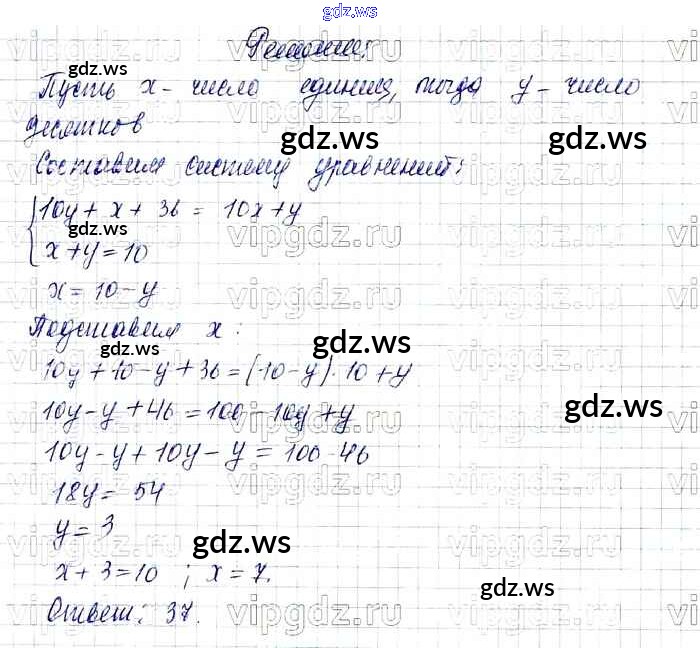 gdz.ws
Решение:
Пусть x - число единиц, тогда y - число
десятков
Составим систему уравнений:
{10y + x + 36 = 10x + y
x + y = 10
x = 10 - y
Подставим x:
10y + 10 - y + 36 = (10 - y) · 10 + y
10y - y + 46 = 100 - 10y + y
10y - y + 10y - y = 100 - 46
18y = 54
y = 3
x + 3 = 10 ; x = 7.
Ответ: 37.
gdz.ws
gdz.ws
gdz.ws
gdz.ws
gdz.ws
gdz.ws
gdz.ws
gdz.ws
vipgdz.ru